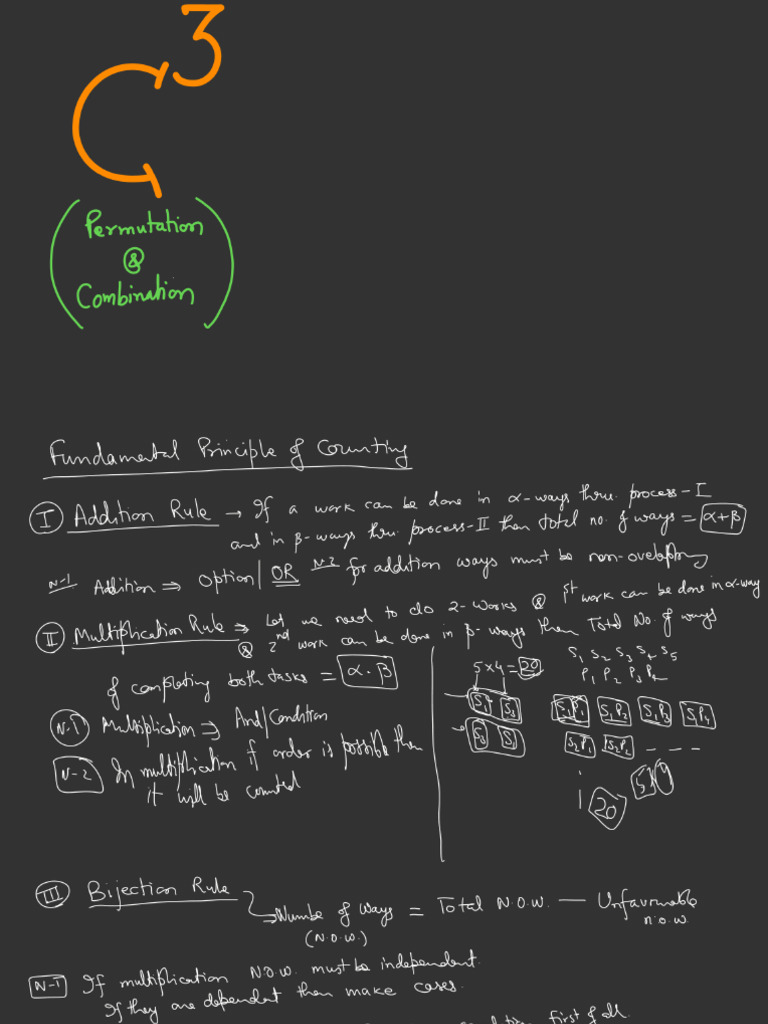 3
Permutation
&
Combination
Fundamental Principle of Counting
I Addition Rule → If a work can be done in α-ways thru. process-I
and in β-ways thru process-II then total no. of ways = α+β
N-1 Addition ⇒ Option/ OR N-2 for addition ways must be non-ovelapping
II Multiplication Rule ⇒ Let we need to do 2-works & 1st work can be done in α-way
& 2nd work can be done in β-ways then Total No. of ways
of completing both tasks = α.β
N-1 Multiplication ⇒ And/Condition
N-2 In multiplication if order is possible then
it will be counted
S1 S2 S3 S4 S5
P1 P2 P3 P4
5x4=20
S1P1 S1P2 S1P3 S1P4
S2P1 S2P2 - - -
20
III Bijection Rule
Number of Ways = Total N.O.W. — Unfavourable
(N.O.W.) n.o.w.
N-1 If multiplication N.O.W. must be independent.
If they are dependent then make cases.
first of all.